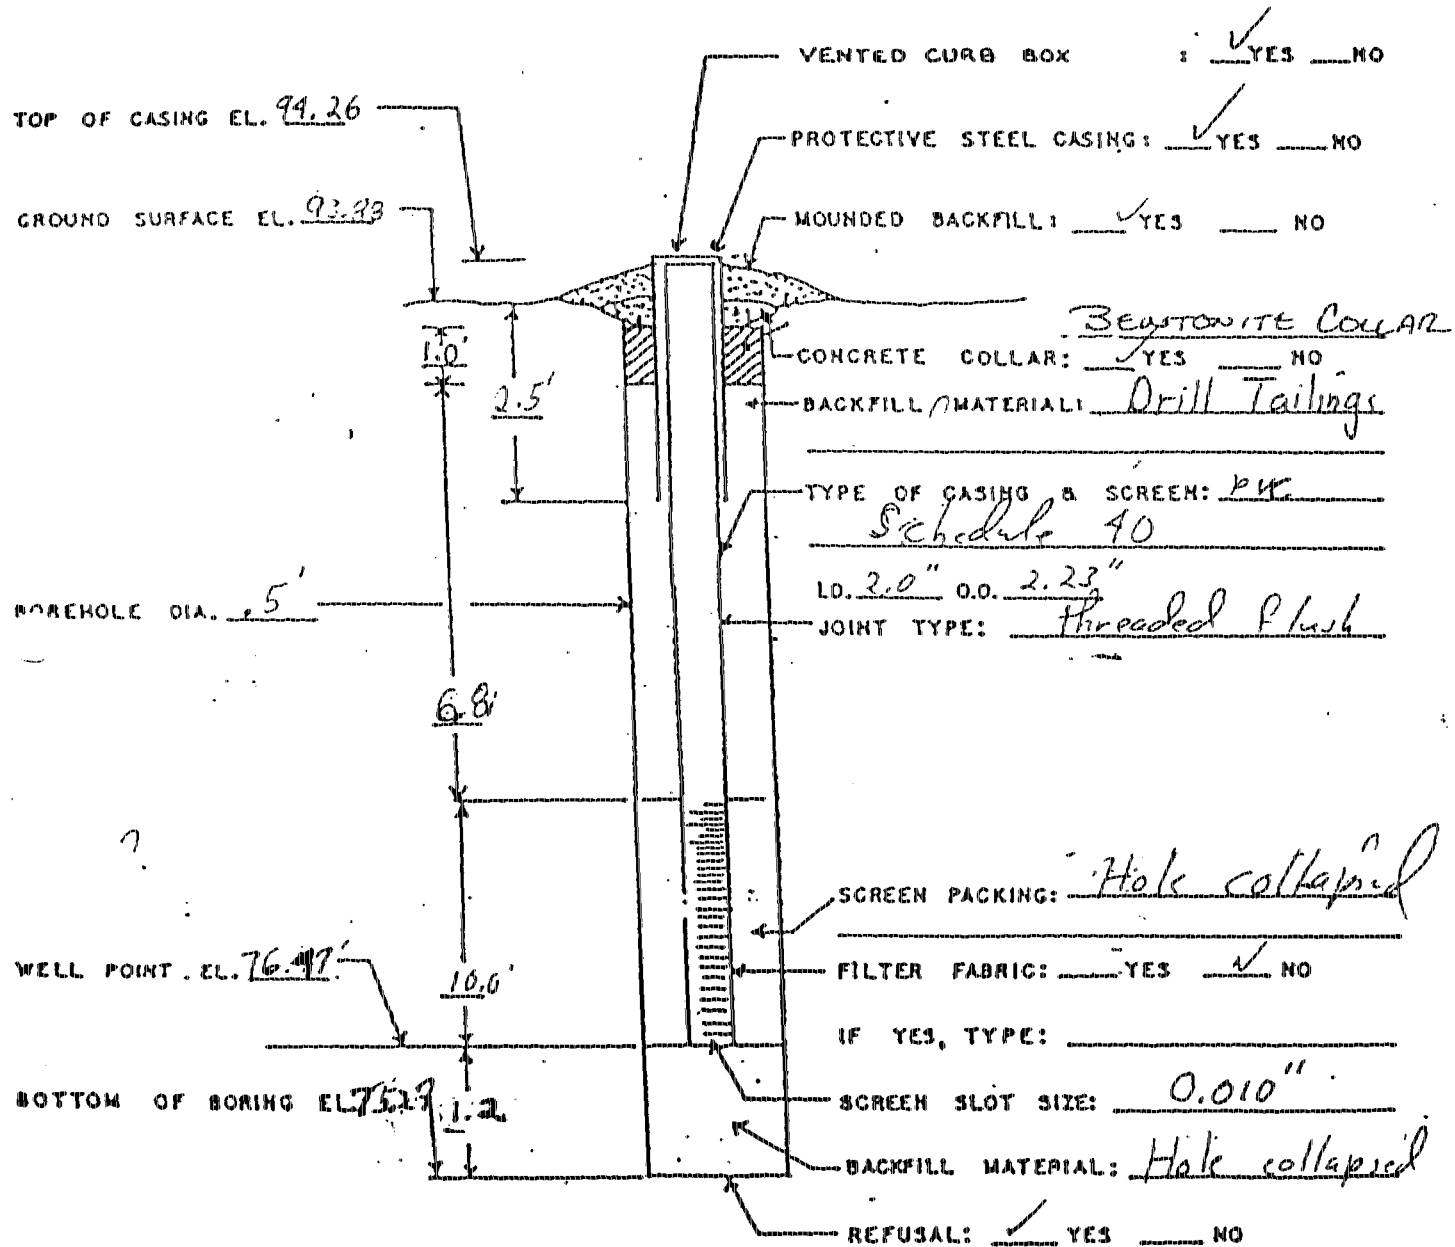 VENTED CURB BOX : ✓YES NO
TOP OF CASING EL. 94.26
PROTECTIVE STEEL CASING: ✓YES NO
GROUND SURFACE EL.
MOUNDED BACKFILL: ✓YES NO
BENTONITE COLLAR
1.0'
CONCRETE COLLAR: ✓YES NO
2.5'
BACKFILL MATERIAL: Drill Tailings
TYPE OF CASING & SCREEN: pvc
Schedule 40
I.D. 2.0" O.D. 2.23"
BOREHOLE DIA. .5'
JOINT TYPE: threaded flush
6.8'
SCREEN PACKING: Hole collapsed
WELL POINT . EL.
FILTER FABRIC: YES ✓ NO
10.0'
IF YES, TYPE:
BOTTOM OF BORING EL
1.2
SCREEN SLOT SIZE: 0.010"
BACKFILL MATERIAL: Hole collapsed
REFUSAL: ✓ YES NO